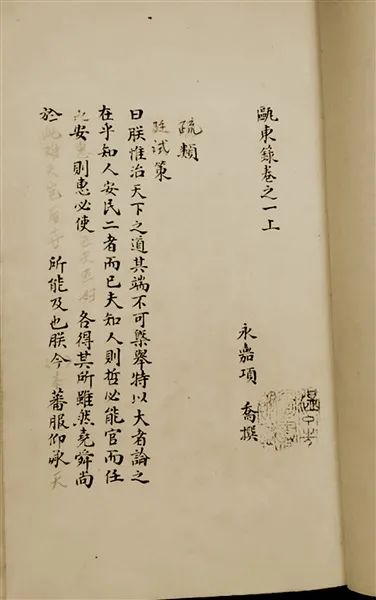 甌東錄卷之一上
永嘉項 喬撰
疏類
廷試策
曰朕惟治天下之道其端不可槩舉特以大者論之
在乎知人安民二者而已夫知人則哲必能官而任
之安 則惠必使 各得其所雖然堯舜尚
於 所能及也朕今 蕃服仰承天